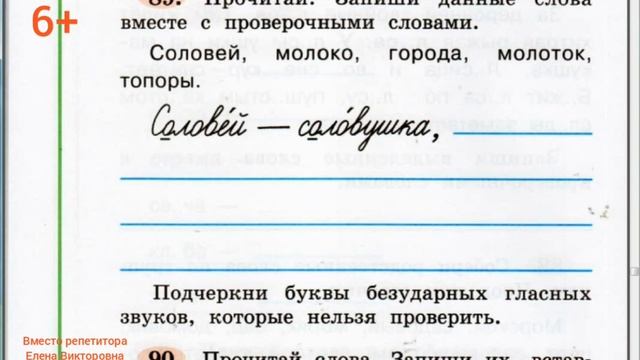 6+
89. Прочитай. Запиши данные слова
вместе с проверочными словами.
Соловей, молоко, города, молоток,
топоры.
Соловéй — солóвушка,
Подчеркни буквы безударных гласных
звуков, которые нельзя проверить.
Вместо репетитора
Елена Викторовна
90. Прочитай слова. Запиши их, встав-